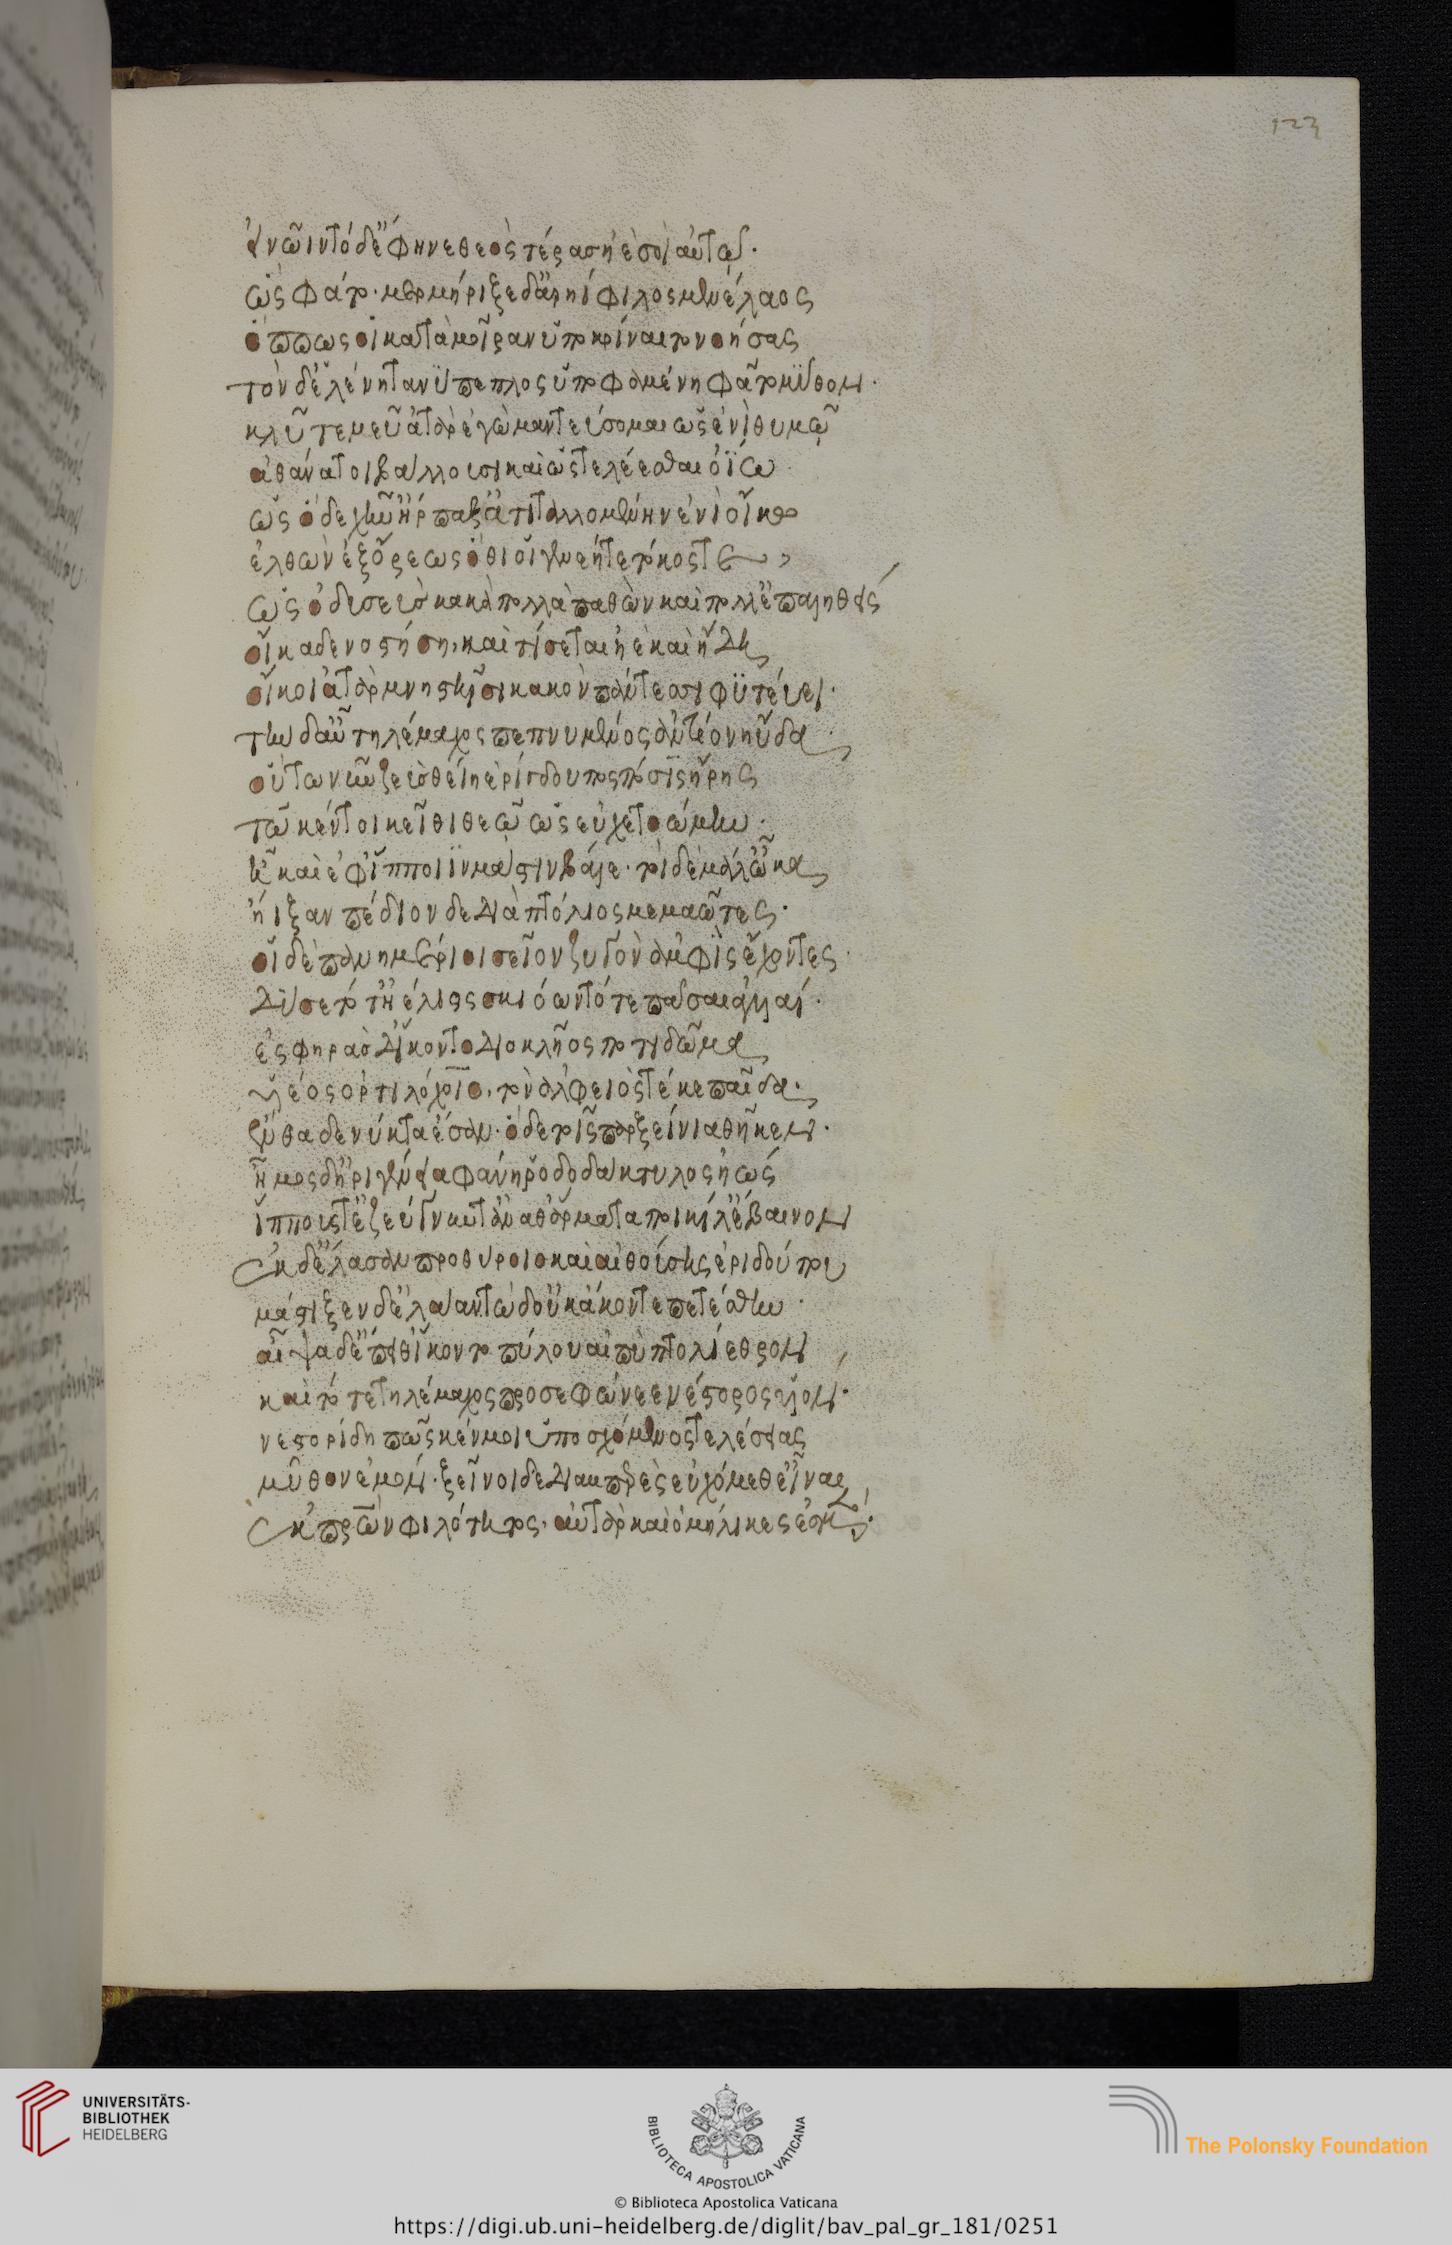 123
ἢ νῶιν τόδ' ἔφηνε θεὸς τέρας ἠὲ σοὶ αὐτῷ.
ὣς φάτο. μερμήριξε δ' ἀρηίφιλος μενέλαος
ὅππως οἱ κατὰ μοῖραν ὑποκρίναιτο νοήσας
τὸν δ' ἑλένη τανύπεπλος ὑποφθαμένη φάτο μῦθον.
κλῦτέ μευ αὐτὰρ ἐγὼ μαντεύσομαι ὡς ἐνὶ θυμῷ
ἀθάνατοι βάλλουσι καὶ ὡς τελέεσθαι ὀίω
ὡς ὅδε χῆν' ἥρπαξ' ἀτιταλλομένην ἐνὶ οἴκῳ
ἐλθὼν ἐξ ὄρεως ὅθι οἱ γενεή τε τόκος τε
ὣς ὀδυσεὺς κακὰ πολλὰ παθὼν καὶ πόλλ' ἐπαληθεὶς
οἴκαδε νοστήσῃ, καὶ τίσεται ἠὲ καὶ ἤδη
οἴκοι ἀτὰρ μνηστῆρσι κακὸν πάντεσσι φυτεύει.
τὴν δ' αὖ τηλέμαχος πεπνυμένος ἀντίον ηὔδα
οὕτω νῦν ζεὺς θείη ἐρίγδουπος πόσις ἥρης
τῶ κέν τοι κεῖθι θεῷ ὣς εὐχετοώμην.
ἦ καὶ ἐφ' ἵπποιιν μάστιν βάλε. τοὶ δὲ μάλ' ὦκα
ἤιξαν πεδίονδε διὰ πτόλιος μεμαῶτες.
οἱ δὲ πανημέριοι σεῖον ζυγὸν ἀμφὶς ἔχοντες
δύσετό τ' ἠέλιος σκιόωντό τε πᾶσαι ἀγυιαί.
ἐς φηρὰς δ' ἵκοντο διοκλῆος ποτὶ δῶμα
υἱέος ὀρτιλόχοιο, τὸν ἀλφειὸς τέκε παῖδα.
ἔνθα δὲ νύκτ' ἄεσαν. ὁ δὲ τοῖς πὰρ ξείνια θῆκεν.
ἦμος δ' ἠριγένεια φάνη ῥοδοδάκτυλος ἠώς
ἵππους τ' ἐζεύγνυντ' ἀνά θ' ἅρματα ποικίλ' ἔβαινον
ἐκ δ' ἔλασαν προθύροιο καὶ αἰθούσης ἐριδούπου
μάστιξεν δ' ἐλάαν τὼ δ' οὐκ ἄκοντε πετέσθην.
αἶψα δ' ἔπειθ' ἵκοντο πύλου αἰπὺ πτολίεθρον
καὶ τότε τηλέμαχος προσεφώνεε νέστορος υἱόν.
νεστορίδη πῶς κέν μοι ὑποσχόμενος τελέσειας
μῦθον ἐμόν. ξεῖνοι δὲ διαμπερὲς εὐχόμεθ' εἶναι
ἐκ πατέρων φιλότητος, αὐτὰρ καὶ ὁμήλικες εἰμέν.
UNIVERSITÄTS-
BIBLIOTHEK
HEIDELBERG
BIBLIOTECA APOSTOLICA VATICANA
The Polonsky Foundation
© Biblioteca Apostolica Vaticana
https://digi.ub.uni-heidelberg.de/diglit/bav_pal_gr_181/0251